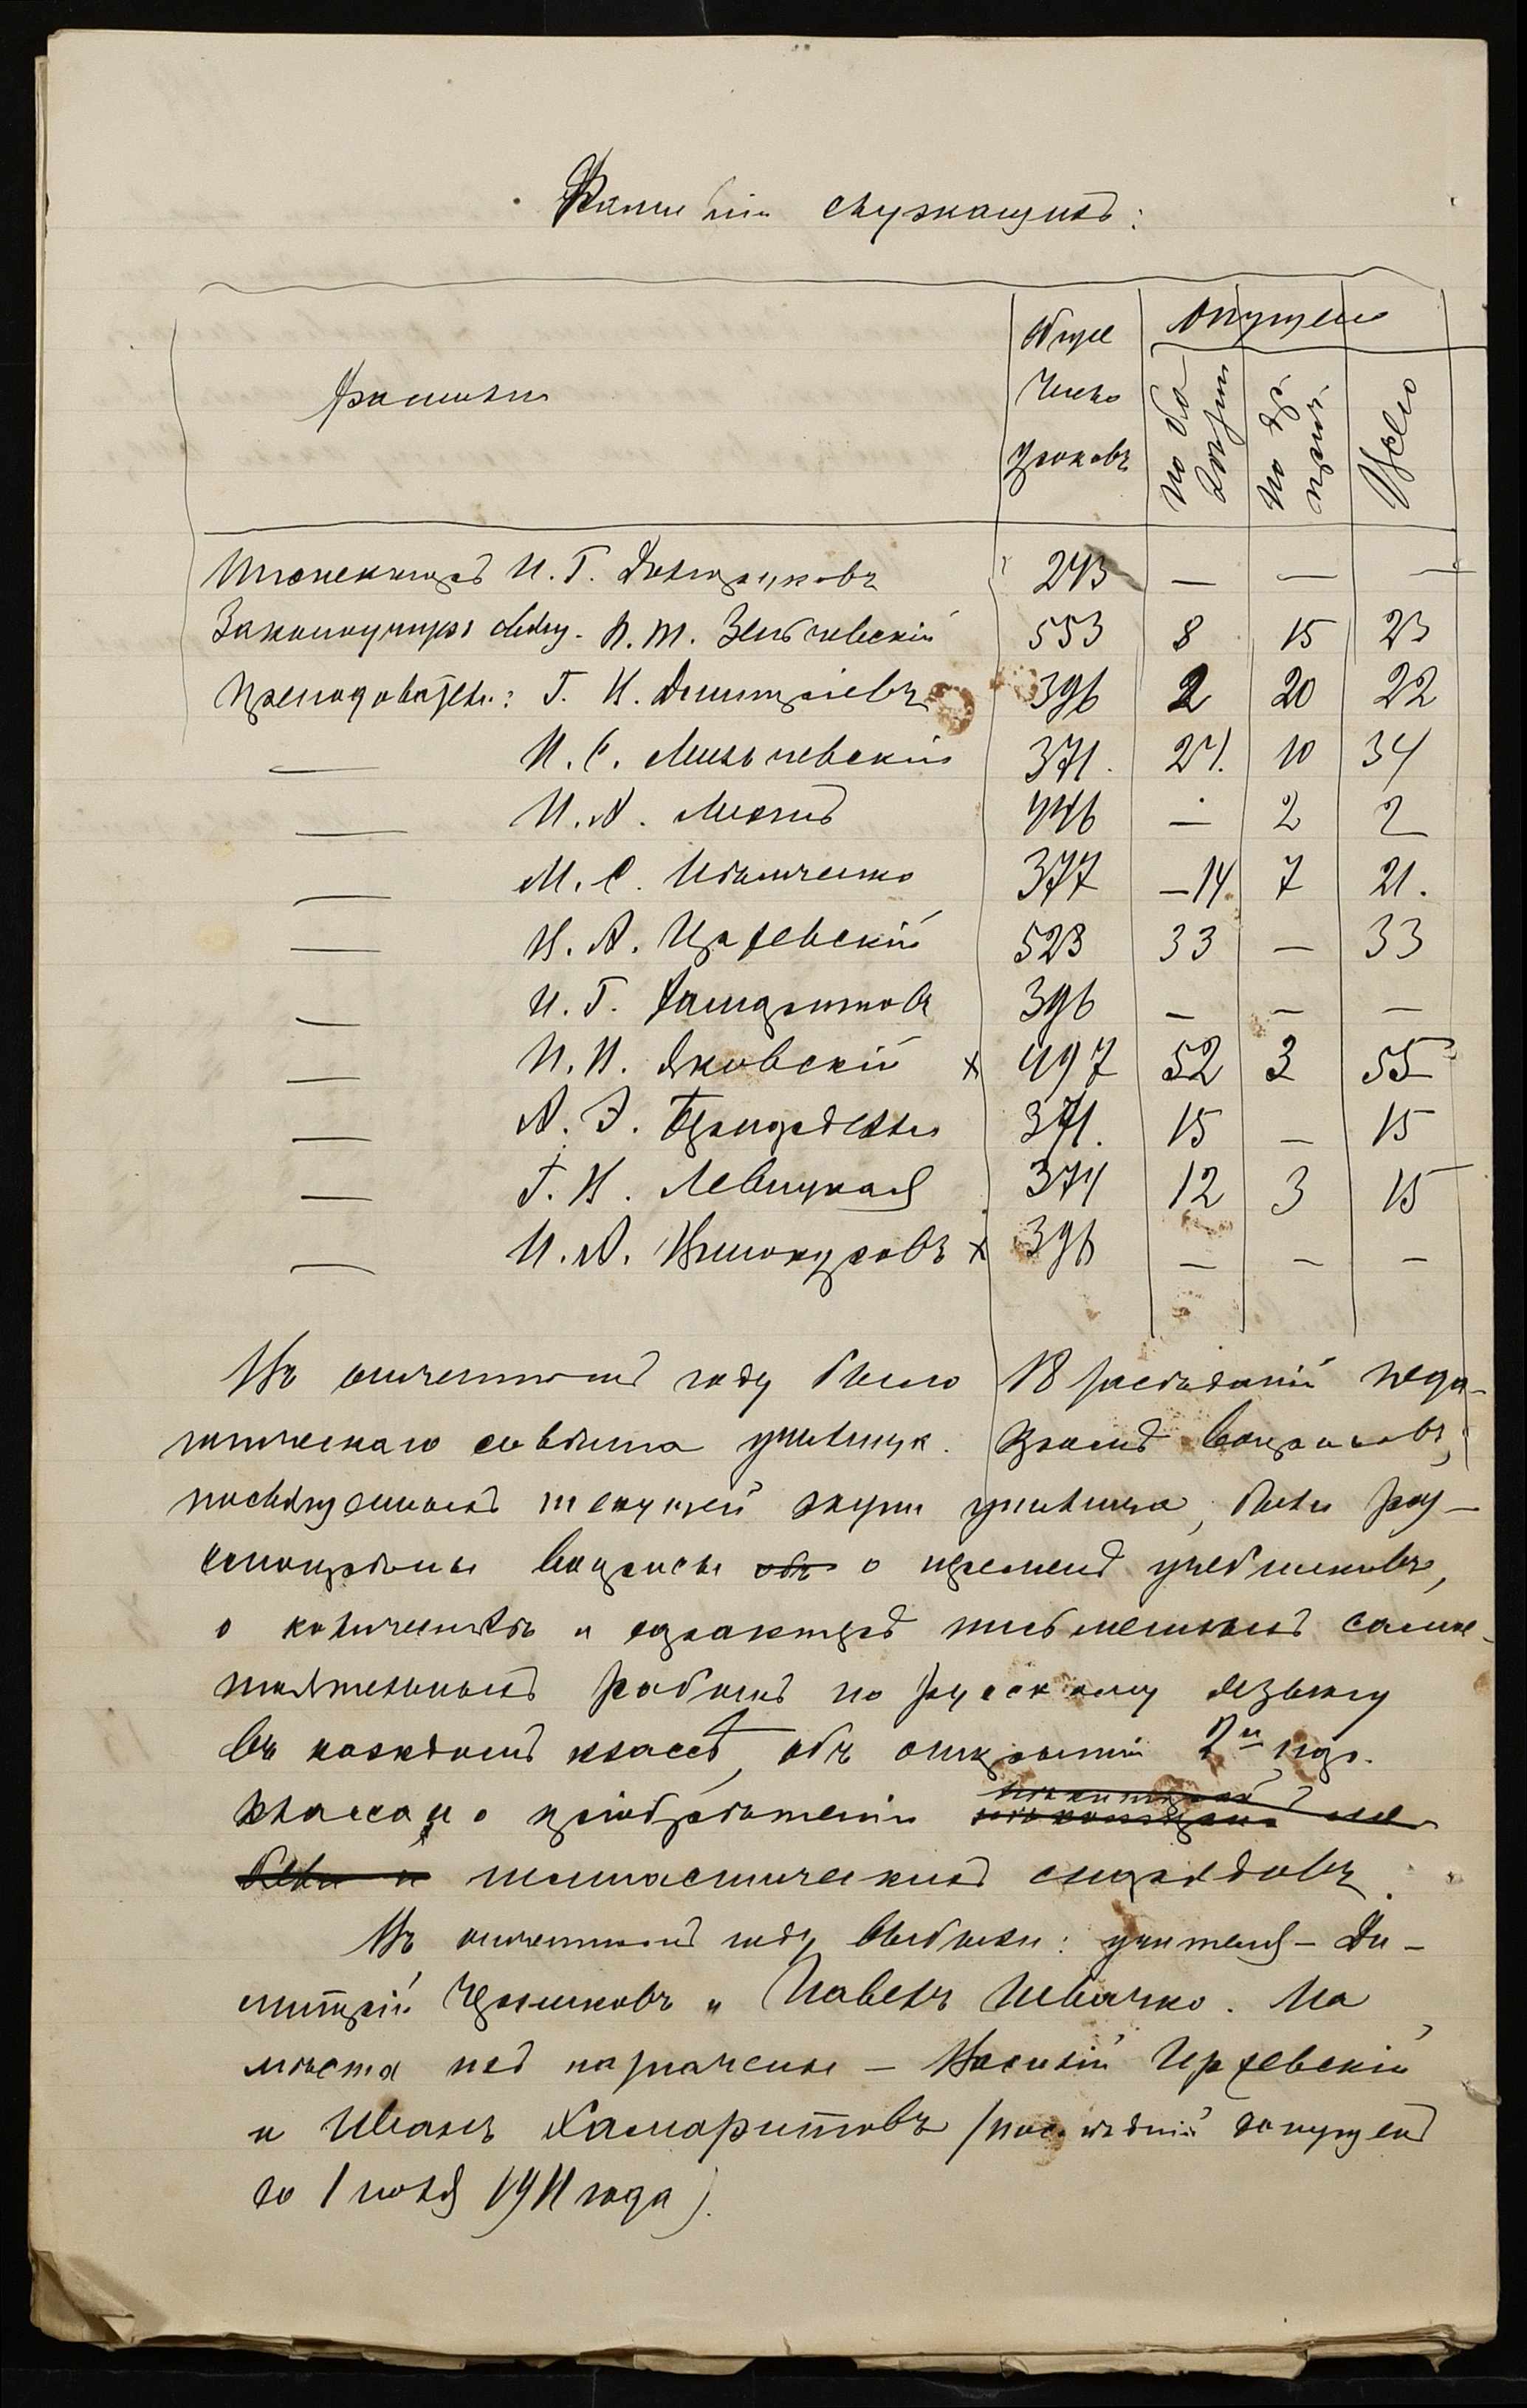 Фамиліи служащихъ:
Фамиліи
Общее число уроковъ
Опущено
по болѣзни
по др. прич.
Всего
Инспекторъ И. Г. 243 — — —
Законоучитель свящ. П. М. 553 8 15 23
Преподаватели: Г. И. Димитріевъ 396 2 20 22
— И. С. Мильчевскій 371. 24. 10 34
— И. А. 446 — 2 2
— М. С. Иванченко 377 —14 7 21.
— В. А. Иржевскій 523 33 — 33
— И. Г. Хамаритовъ 396 — — —
— И. И. Яковскій × 497 52 3 55
— А. Э. 371. 15 — 15
— Г. И. Левицкая 374 12 3 15
— И. А. Винокуровъ × 396 — — —
Въ отчетномъ году было 18 засѣданій педа-
гогическаго совѣта училища. Кромѣ вопросовъ,
посвященныхъ текущей жизни училища, были раз-
смотрѣны вопросы объ о пріемѣ учебниковъ,
о количествѣ и характерѣ письменныхъ само-
стоятельныхъ работъ по русскому языку
въ каждомъ классѣ, объ открытіи 2го
класса и о пріобрѣтеніи ме-
бели и гимнастическихъ снарядовъ.
Въ отчетномъ году выбыли: учителя — Ди-
митрій Чрешковъ и Павелъ Ивачко. На
мѣста ихъ назначены — Василій Иржевскій
и Иванъ Хамаритовъ (послѣдній допущенъ
до 1 іюля 1911 года).